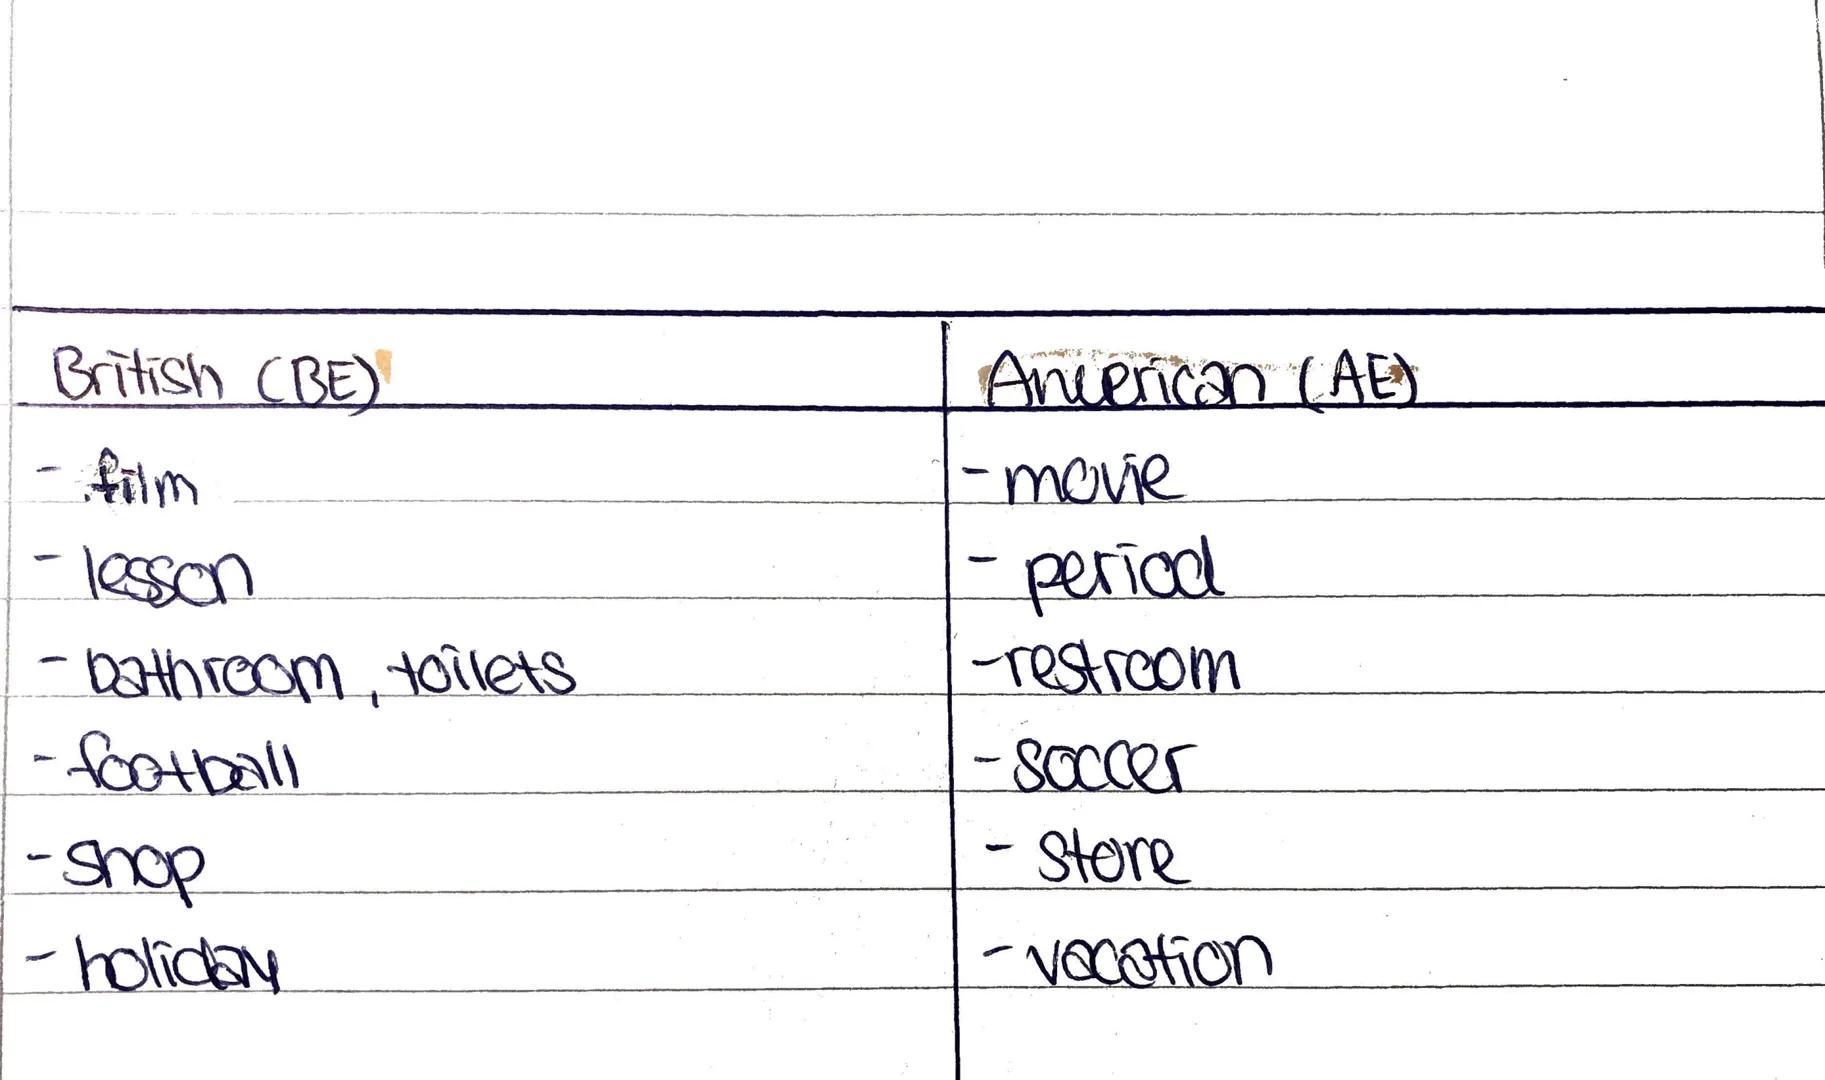 British (BE) American (AE)
- film - movie
- lesson - period
- bathroom, toilets - restroom
- football - soccer
- shop - store
- holiday - vacation